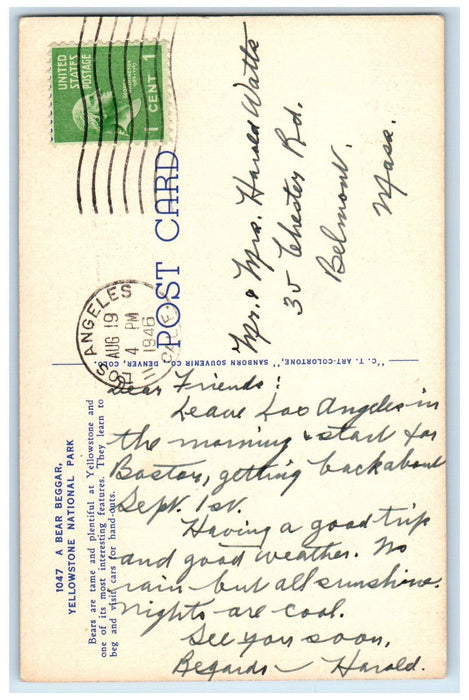 UNITED
STATES
POSTAGE
1 CENT 1
LOS ANGELES
AUG 19
4 PM
1946
CALIF.
POST CARD
Mr. & Mrs. Harold Watts
35 Chester Rd.
Belmont.
Mass.
"C. T. ART-COLORTONE," SANBORN SOUVENIR CO., DENVER, COLO.
1047 A BEAR BEGGAR,
YELLOWSTONE NATIONAL PARK
Bears are tame and plentiful at Yellowstone and
one of its most interesting features. They learn to
beg and visit cars for hand-outs.
Dear Friends:
Leave Los Angeles in
the morning & start for
Boston, getting back about
Sept. 1st.
Having a good trip
and good weather. No
rain but all sunshine.
Nights are cool.
See you soon,
Regards - Harold.